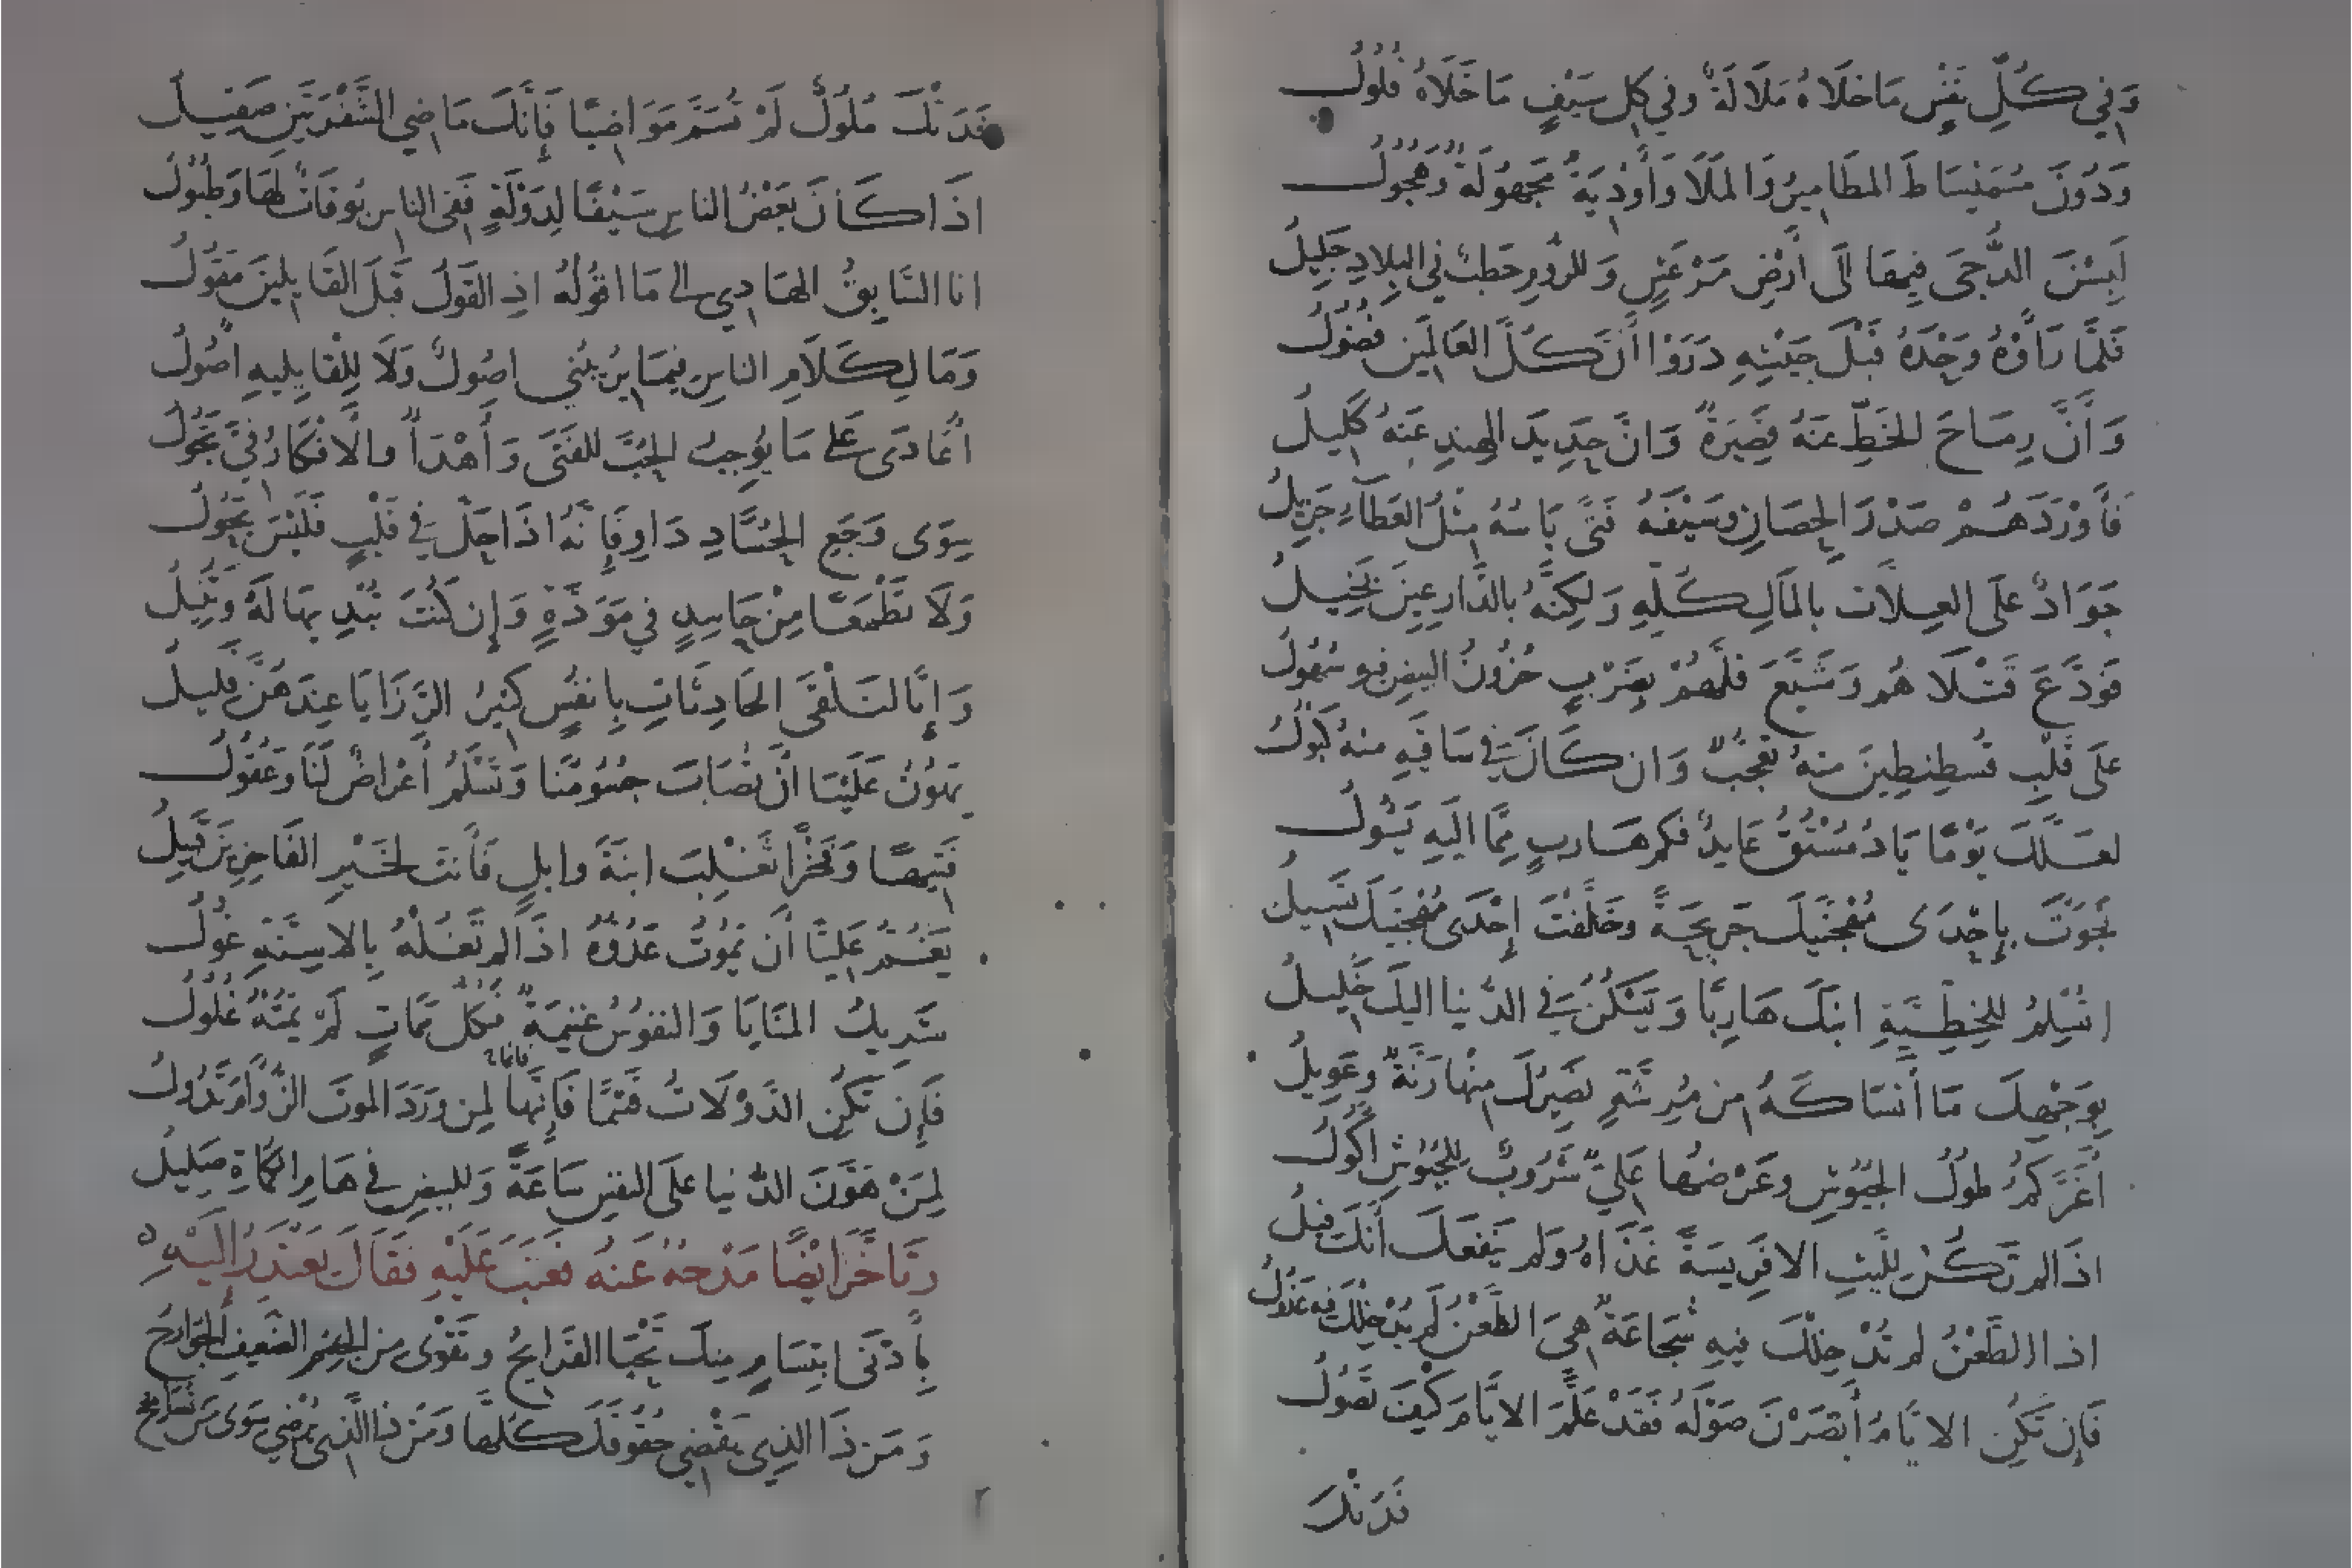 وَفِي كُلِّ نَفْسٍ مَا خَلَاهُ مَلَالَةٌ وَفِي كُلِ سَيْفٍ مَا خَلَاهُ فُلُولُ
وَدُونَ سُمَيْسَاطَ المطَامِيرُ وَالمَلَا وَأَوْدِيَةٌ مَجهُولَةٌ وَهُجُولُ
لَبِسْنَ الدُّجَى فِيهَا الَى أَرْضِ مَرْعَشٍ وَللرُومِ خَطبٌ فِي البِلَادِ جَلِيلُ
فَلَمَّا رَأَوْهُ وَحْدَهُ قَبْلَ جَيْشِهِ دَرَوْا أَنَّ كُلَّ العَالَمِينَ فُضُولُ
وَأَنَّ رِمَاحَ الخَطِّ عَنهُ قَصِيرَةٌ وَانَّ حَدِيدَ الهِندِ عَنهُ كَلِيلُ
فَأَوْرَدَهُمْ صَدْرَ الحِصَانِ وَسَيْفَهُ فَتًى بَاسُهُ مِثْلُ العَطَآءِ جَزِيلُ
جَوَادٌ عَلَى العِلَّات بِالمَالِ كُلِّهِ وَلكِنَّهُ بالدَّارِعِينَ بَخِيلُ
فَوَدَّعَ قَتْلَاهُم وَشَيَّعَ فَلَّهُمْ بِضَرْبٍ حُزُونُ البيضِ فيهِ سُهُولُ
عَلَى قَلْبِ قُسطِنطِينَ مِنهُ تَعَجُّبٌ وَان كَانَ فِي سَاقَيهِ مِنهُ كُبُولُ
لعَلَّكَ يَوْمًا يَا دُمُسْتُقُ عَايِدٌ فكم هَاربٍ مِمَّا اليَهِ يَئُولُ
نَجَوْتَ بِإحْدَى مُهْجَتَيْكَ جَرِيحَةً وخَلَّفْتَ إحْدَى مُهْجَتَيْكَ تَسِيلُ
اتُسْلِمُ للخَطِّيَّةِ ابنَكَ هَارِبًا وَيَسْكُنُ فِي الدُّنيا اليكَ خَلِيلُ
بِوَجْهِكَ مَا أَنسَاكَهُ مِن مُرِشَّةٍ نَصِيرُكَ مِنْها رَنَّةٌ وَعَوِيلُ
أَغَرَّكُمُ طُولُ الجيُوشِ وعَرْضُها عَلِيٌّ شَرُوبٌ لِلجُيُوشِ أَكُولُ
اذَا لم تَكُنْ لِلَّيثِ الا فَرِيسَةً غَذَاهُ وَلم يَنفَعكَ أَنَّكَ فِيلُ
اذا الطَّعْنُ لم تُدْخِلْكَ فِيهِ شَجَاعَةٌ هِيَ الطَّعْنُ لَم يُدْخِلْكَ فِيهِ عَذُولُ
فَإِن تَكُنِ الايَّامُ أَبْصَرْنَ صَوْلَهُ فَقَدْ عَلَّمَ الايَّامَ كَيْفَ تَصُولُ
فَدَتْكَ
فَدَتْكَ مُلُوكٌ لَمْ تُسَمَّ مَوَاضِيًا فَإِنَّكَ مَاضِي الشَّفْرَتَيْنِ صَقِيلُ
اذَا كَانَ بَعْضُ الناسِ سَيْفًا لِدَوْلَةٍ فَفِي الناسِ بُوقَاتٌ لَهَا وَطُبُولُ
انا السَّابِقُ الهَادِي إلى مَا اقُولُهُ اذِ القَولُ قَبلَ القَايِلِينَ مَقُولُ
وَمَا لِكَلَامِ الناسِ فِيمَا يَرِيبُنِي اصُولٌ وَلَا لِلْقَايِلِيهِ أُصُولُ
أُعَادَى عَلَى مَا يُوجِبُ الحُبَّ للفَتَى وَأَهْدَأُ والأَفْكَارُ فِيَّ تَجُولُ
سِوَى وَجَعِ الحُسَّادِ دَاوِ فَإِنَّهُ اذَا حَلَّ فِي قَلْبٍ فَلَيْسَ يَحُولُ
وَلَا تَطْمَعًا مِنْ حَاسِدٍ فِي مَوَدَّةٍ وَإِن كُنْتَ تُبْدِيهَا لَهُ وَتُنِيلُ
وَإِنَّا لنَلْقَى الحَادِثَاتِ بِانفُسٍ كَثِيرُ الرَّزَايَا عِندَهُنَّ قَلِيلُ
يَهُونُ عَلَيْنَا أَنْ تُصَابَ جُسُومُنَا وَتَسْلَمُ أَعْرَاضٌ لَنَا وَعُقُولُ
فَتِيهًا وَفَخْرًا تَغْلِبَ ابنَةَ وايلٍ فَأَنت لخَيْرِ الفَاخِرِينَ قَبِيلُ
يَغُمُّ عَلِيًّا أَن يَمُوتَ عَدُوُّهُ اذَا لم تَغُلْهُ بِالاسِنَّةِ غُولُ
شَرِيكُ المنَايَا وَالنفُوسُ غَنِيمَةٌ فَكُلُّ مَمَاتٍ لَمْ يُمِتْهُ غُلُولُ
فَإِن تَكُنِ الدَّوْلَاتُ قِسْمًا فَإِنَّهَا لِمن وَرَدَ الموتَ الزُّؤَامَ تَدُولُ
لِمَنْ هَوَّنَ الدُّنيا عَلَى النفسِ سَاعَةً وَللبيضِ فِي هَامِ الكُمَاةِ صَلِيلُ
وَتَأَخَّرَ ايْضًا مَدْحُهُ عَنهُ فَعَتَبَ عَلَيْهِ فَقَالَ يَعْتَذِرُ إِلَيْهِ
بِأَدْنَى ابتِسَامٍ مِنكَ تَحْيَا القَرَايِحُ وَتَقْوَى مِن الجِسْمِ الضَّعِيفِ الجَوَارِحُ
وَمَن ذَا الذِي يَقْضِي حُقُوقَكَ كُلَّهَا وَمَن ذَا الَّذِي يُرْضِي سِوَى مَن تُسَامِحُ